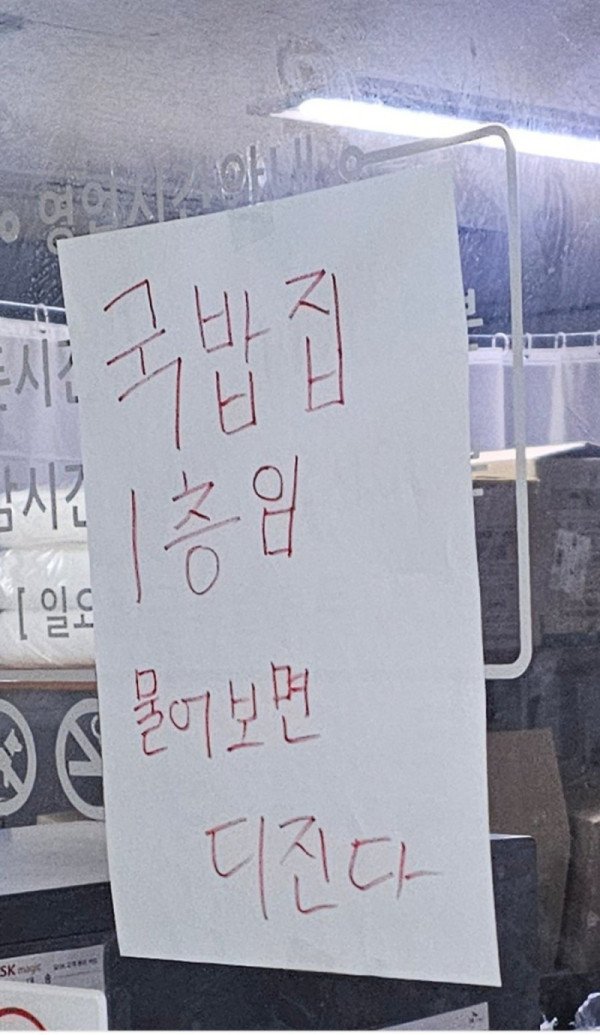 영업시간안내
국밥집
1층임
물어보면
디진다
시간
시간
[ 일요
SK magic